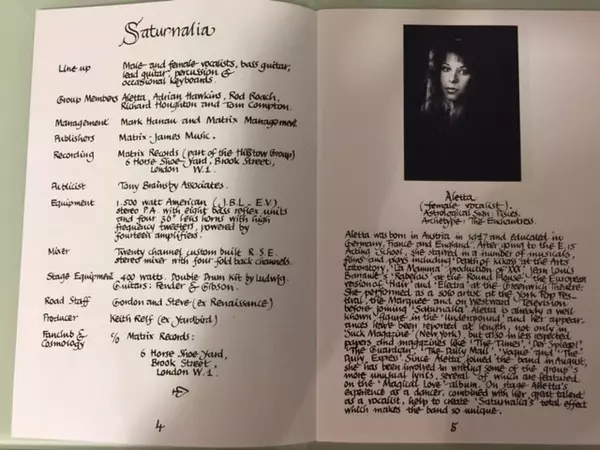 Saturnalia
Line up Male and female vocalists, bass guitar,
lead guitar, percussion &
occasional keyboards.
Group Members Aletta, Adrian Hawkins, Rod Roach,
Richard Houghton and Tom Compton.
Management Mark Hanau and Matrix Management
Publishers Matrix-James Music.
Recording Matrix Records (part of the Group)
6 Horse Shoe Yard, Brook Street,
London W.1.
Publicist Tony Brainsby Associates.
Equipment 1,500 watt American (J.B.L.-E.V.)
stereo P.A. with eight bass reflex units
and four 30" lens horns with high
frequency tweeters, powered by
fourteen amplifiers.
Mixer Twenty channel custom built R.S.E.
stereo mixer with four fold back channels.
Stage Equipment 400 watts. Double Drum Kit by Ludwig.
Guitars: Fender & Gibson.
Road Staff Gordon and Steve (ex Renaissance)
Producer Keith Relf (ex Yardbird)
Fanclub & c/o Matrix Records:
Cosmology
6 Horse Shoe Yard,
Brook Street,
London W.1.
4
Aletta
(female vocalist).
Astrological Sign: Pisces.
Archetype: The Enchantress.
Aletta was born in Austria in 1947 and educated in
Germany, France and England. After going to the E.15
Acting School, she starred in a number of musicals,
films and plays including 'Death of Kross the Arts
Laboratory, 'La Mamma' production of 'XXX', Jean Louis
Barrault's 'Rabelais' at the Round House, the European
version of 'Hair' and 'Electra' at the Greenwich Theatre.
She performed as a solo artist at the York Pop Fes-
tival, the Marquee and on Westward Television
before joining 'Saturnalia'. Aletta is already a well
known figure in the 'Underground' and her appear-
ances have been reported at length, not only in
'Suck Magazine' (New York), but also in less respected
papers and magazines like 'The Times', 'Der Spiegel',
'The Guardian', 'The Daily Mail', 'Vogue' and 'The
Daily Express'. Since Aletta joined the band in August,
she has been involved in writing some of the group's
more unusual lyrics, several of which are featured
on the 'Magical Love' album. On stage Alletta's
experience as a dancer, combined with her great talent
as a vocalist, help to create 'Saturnalia's' total effect
which makes the band so unique.
5